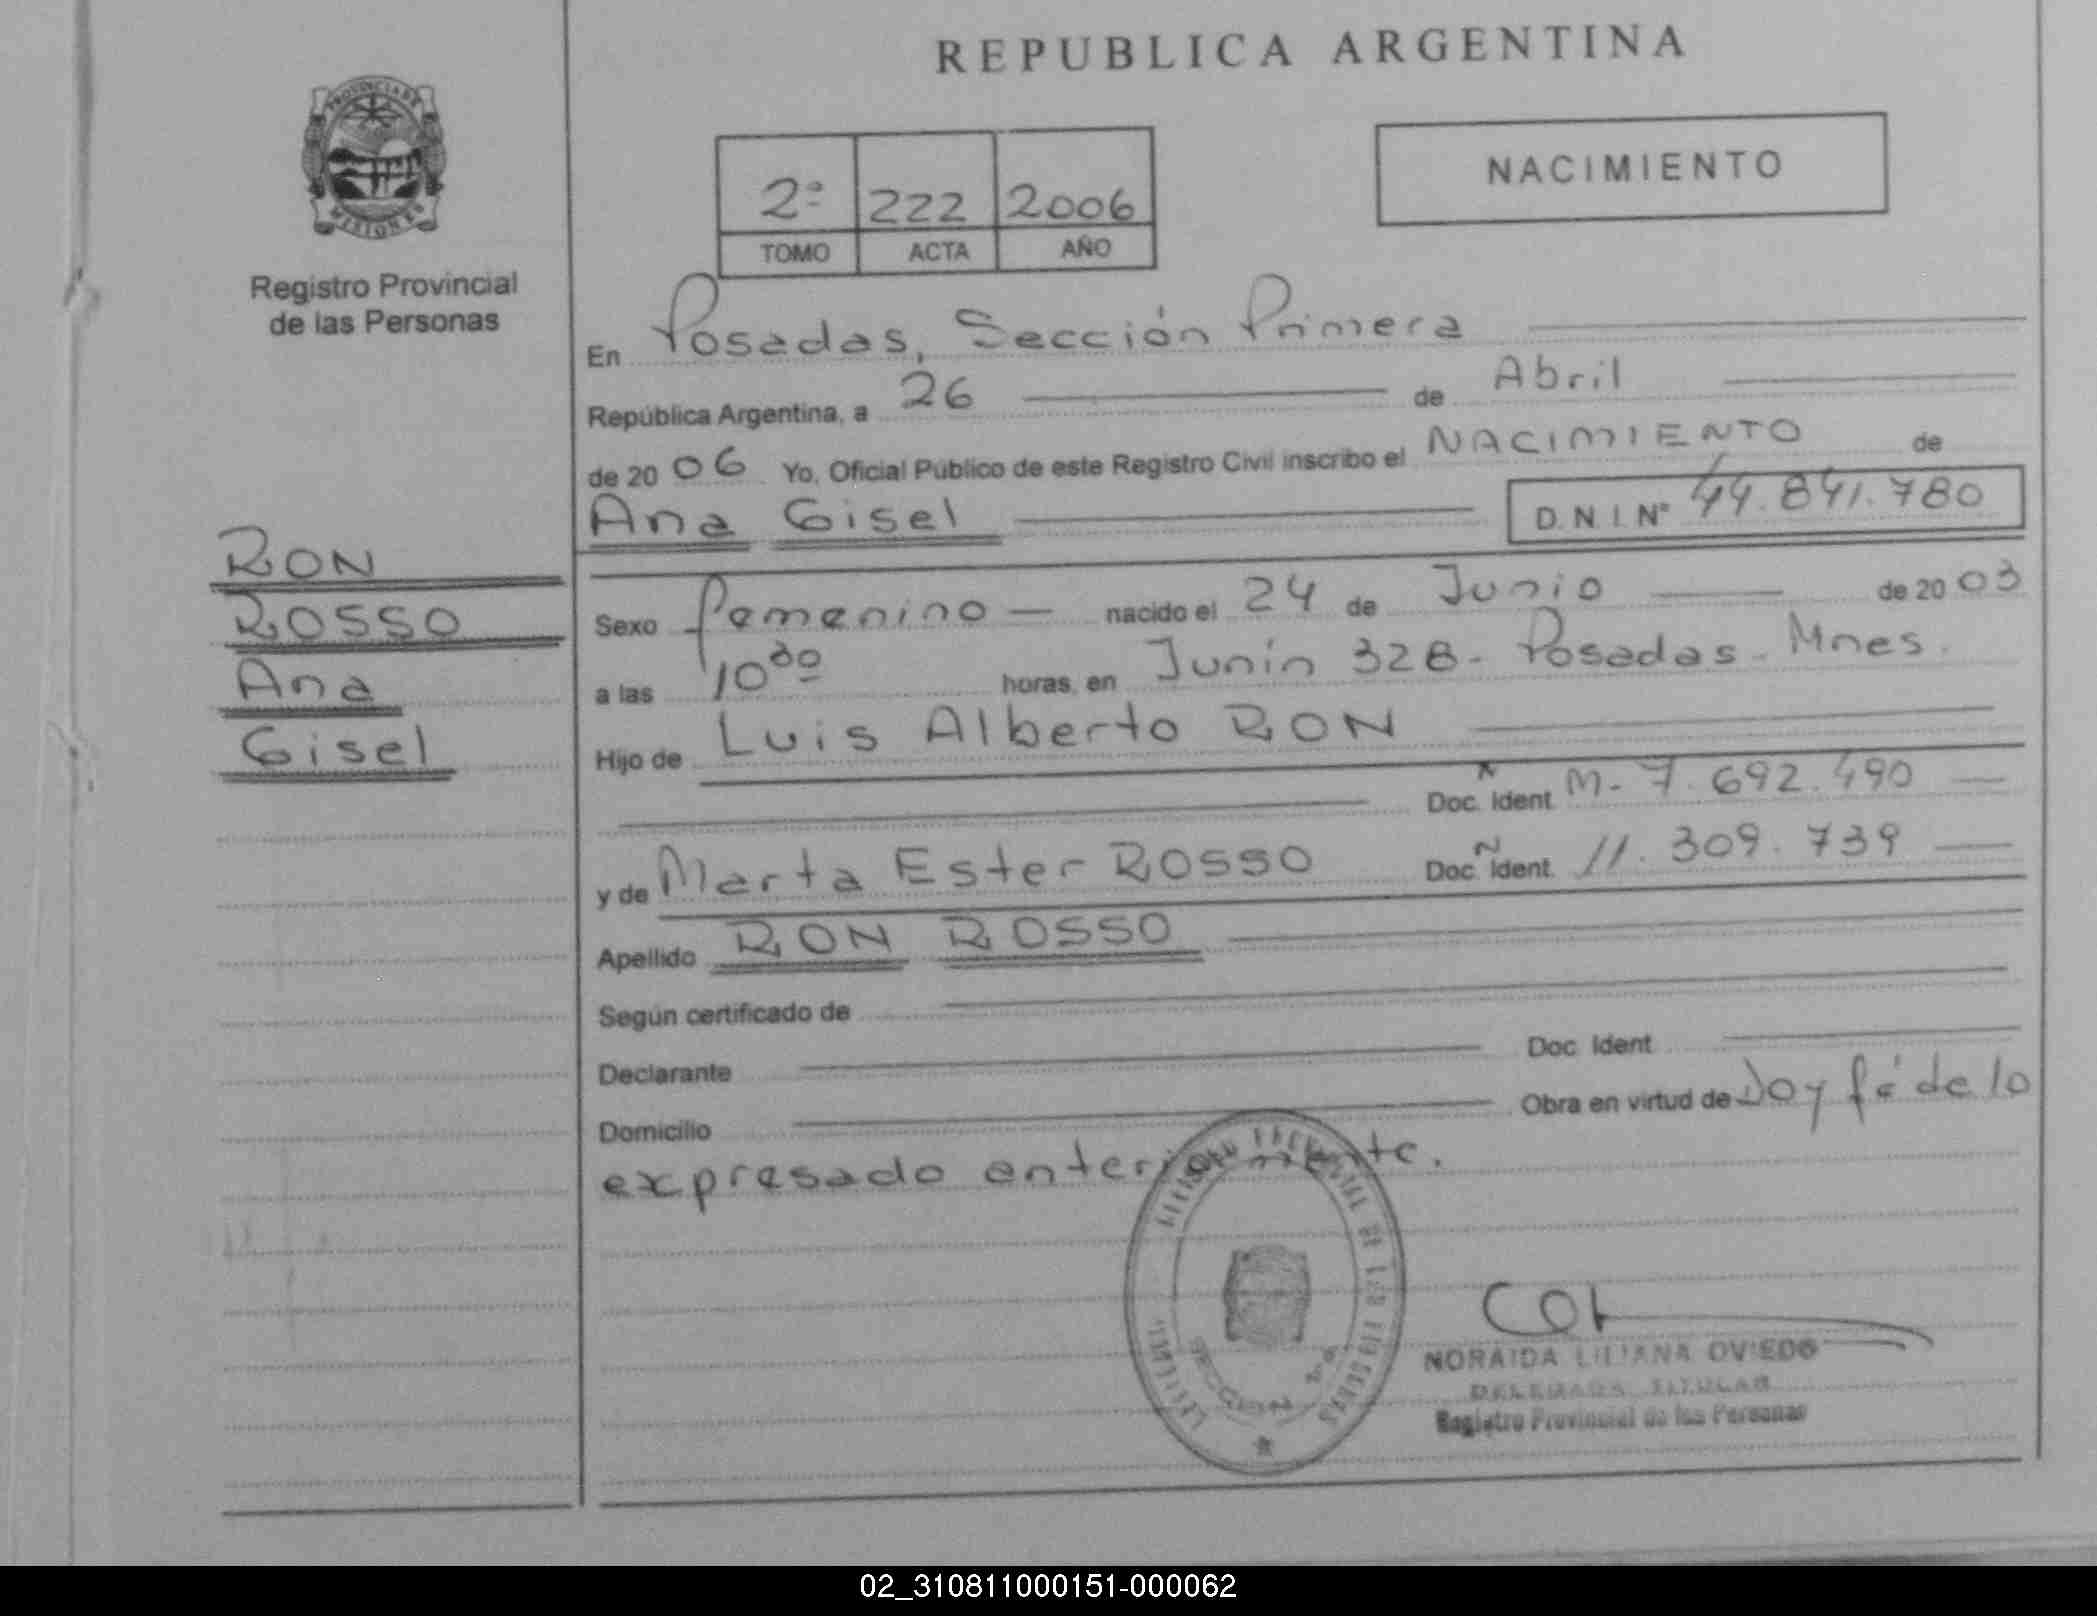 REPUBLICA ARGENTINA
PROVINCIA DE
MISIONES
Registro Provincial
de las Personas
NACIMIENTO
2º 222 2006
TOMO ACTA AÑO
En Posadas, Sección Primera
República Argentina, a 26 de Abril
de 20 06 Yo, Oficial Público de este Registro Civil inscribo el NACIMIENTO de
Ana Gisel D.N.I. Nº 44.841.780
RON
ROSSO
Ana
Gisel
Sexo femenino nacido el 24 de Junio de 20 03
a las 10 30 horas, en Junín 328 - Posadas - Mnes.
Hijo de Luis Alberto RON
Doc. Ident. M- 7.692.490
y de Marta Ester ROSSO Doc. Ident. 11.309.739
Apellido RON ROSSO
Según certificado de
Declarante Doc. Ident
Domicilio Obra en virtud de Doy fé de lo
expresado anteriormente.
SECCION 1ra
NORAIDA LILIANA OVIEDO
DELEGADA TITULAR
Registro Provincial de las Personas
02_310811000151-000062